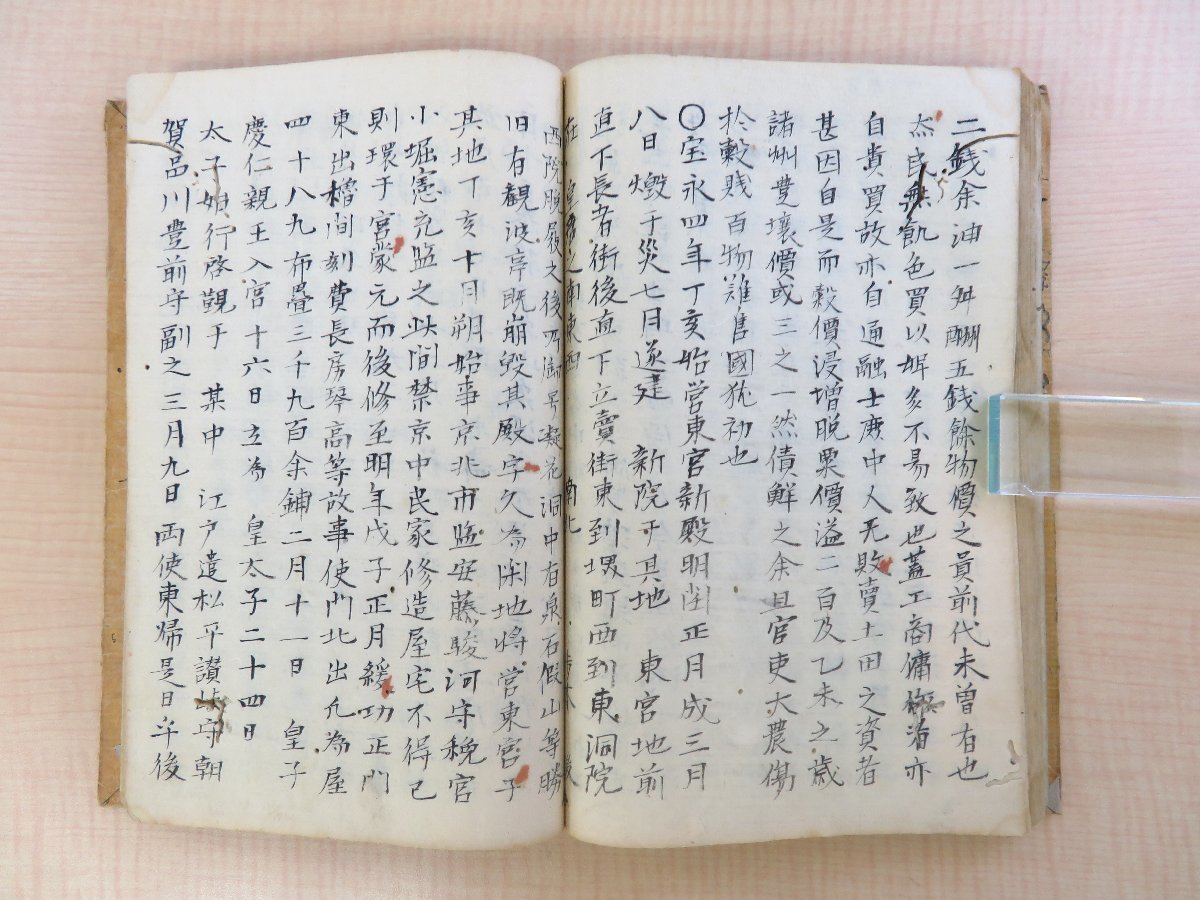 二錢余油一舛酬五錢餘物價之貴前代未曽有也
然民無飢色買以婢多不易敦也蓋工商傭 者亦
自貴買故亦自通融士庶中人无敗賣土田之資者
甚因自是而穀價浸增脱粟價溢二百及乙未之歳
諸州豊壤價或三之一然債鮮之余且官吏大農傷
於穀賎百物難售國犹初也
〇宝永四年丁亥始営東宮新殿明閏正月成三月
八日燬于災七月遂建 新院于其地 東宮地前
直下長者街後直下立賣街東到堺町西到東洞院
在 皇居之南東西 南北
西院脱屣之後 凝花洞中有泉石假山等勝
旧有觀波亭既崩毀其殿字久為閑地將営東宮子
其地丁亥十月朔始事京兆市監安藤駿河守税官
小堀憲充監之此間禁京中民家修造屋宅不得已
則環于宮蒙元而後修至明年戊子正月緩功正門
東出櫓間刻費長房琴高等故事使門北出凡為屋
四十八九布疊三千九百余鋪二月十一日 皇子
慶仁親王入宮十六日立為 皇太子二十四日
太子始行啓觀于 某中 江戸遣松平讃岐守朝
賀畠川豊前守副之三月九日両使東帰是日午後